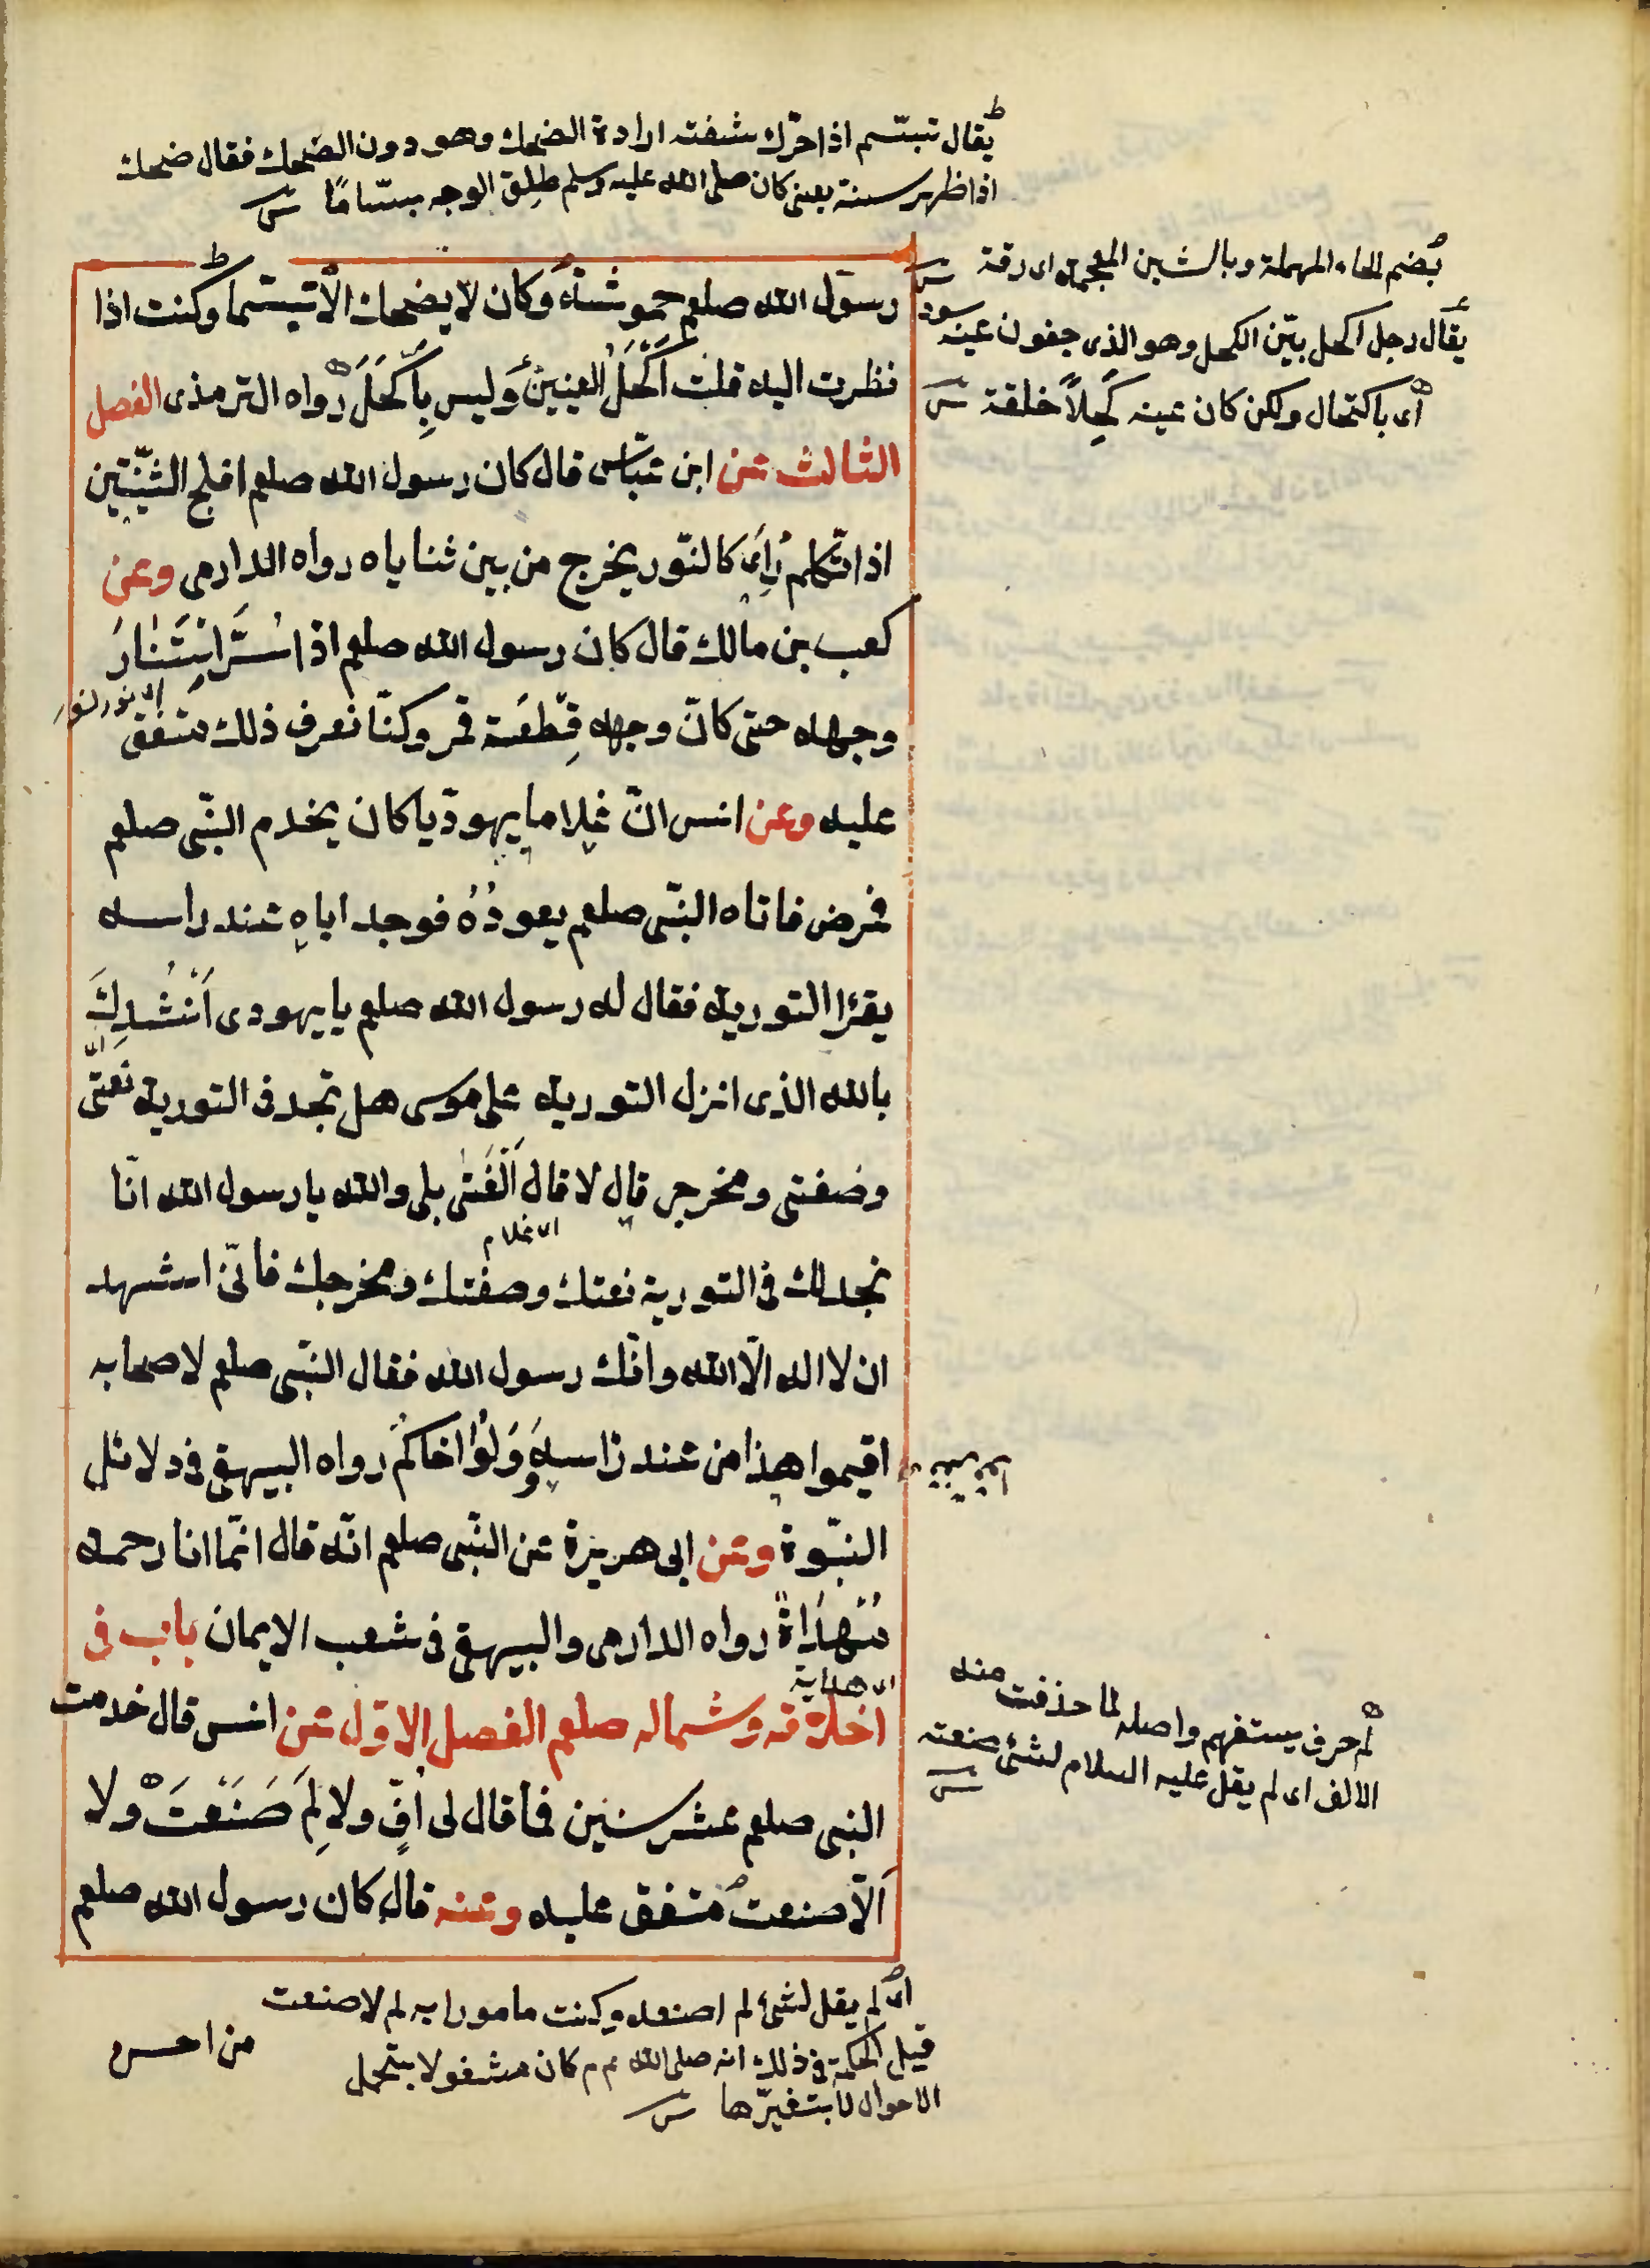 يقال تبسّم اذا حرّك شفته ارادة الضحك وهو دون الضحك فقال ضحك
اذا ظهر سنه يعنى كان صلى الله عليه وسلم طلِق الوجه بسّامًا
بضم الحاء المهملة وبالشين المعجمة اى رقة
يقال رجل اكحل بيّن الكحل وهو الذى جفون عينه سود
اى باكتحال ولكن كان عينه كَحِلاً خلقة
رسول الله صلعم حموشة وكان لا يضحك الّا تبسّما وكنت اذا
نظرت اليه قلت اَكْحَلُ العينين وَليس بِاَكْحَلَ رواه الترمذى الفصل
الثالث عن ابن عبّاس قال كان رسول الله صلعم افلج الثنيّتين
اذا تكلم رُاِىَ كالنّور يخرج من بين ثناياه رواه الدارمى وعن
كعب بن مالك قال كان رسول الله صلعم اذا سُرَّ اسْتَنَارَ
اى نور
وجهه حتى كانّ وجهه قِطعَة قمر وكنّا نعرف ذلك متفق
عليه وعن انس انّ غلاما يهوديّا كان يخدم النّبى صلعم
فمرض فاتاه النّبى صلعم يعودُهُ فوجد اباه عند راسه
يقرٔا التورية فقال له رسول الله صلعم يا يهودى اَنْشُدكَ
بالله الذى انزل التورية على موسى هل تجد فى التورية نعتى
وصفتى ومخرجى قال لا قال الْفَتٰى بلى والله يا رسول الله انّا
اى غلام
نجد لك فى التورية نعتك وصفتك ومخرجك فانّى اشهد
ان لا اله الّا الله وانّك رسول الله فقال النّبى صلعم لاصحابه
اقيموا هذا من عند راسه وَلُوْا اخاكُم رواه البيهقى فى دلائل
النبّوة وعن ابى هريرة عن النّبى صلعم انّه قال انّما انا رحمه
مُهْدَاةٌ رواه الدارمى والبيهقى فى شعب الايمان باب فى
اى هداية
اخلاقه وشماله صلعم الفصل الاوّل عن انس قال خدمت
النبى صلعم عشر سنين فما قال لى اُفٍّ ولا لِمَ صَنَعْتَ ولا
اَلّا صنعت متفق عليه وعنه قال كان رسول الله صلعم
لم حرف يستفهم واصله لما حذفت منه
الالف اى لم يقل عليه السلام لشئ صنعته
اى لم يقل لشئ لم اصنعه وكنت مامورا به لم لا صنعت
قيل الحكمة فى ذلك انه صلى الله عم كان مشغولا
الاحوال لا بتغيّرها
من احسن